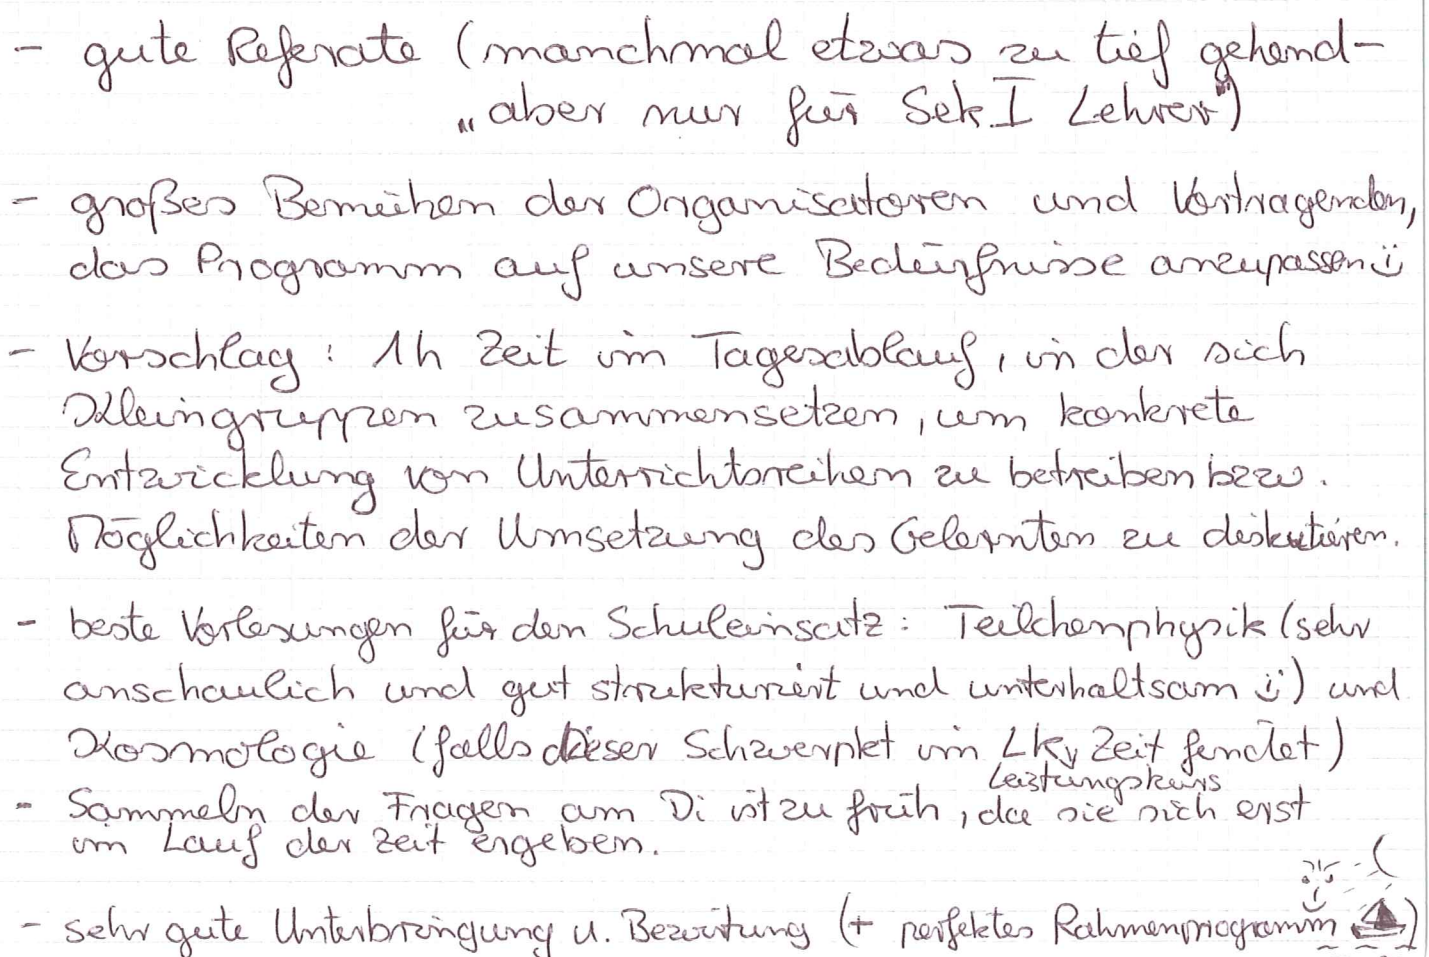 - gute Referate (manchmal etwas zu tief gehend -
„aber nur für Sek I Lehrer")
- großes Bemühen der Organisatoren und Vortragenden,
das Programm auf unsere Bedürfnisse anzupassen
- Vorschlag: 1h Zeit im Tagesablauf, in der sich
Kleingruppen zusammensetzen, um konkrete
Entwicklung von Unterrichtsreihen zu betreiben bzw.
Möglichkeiten der Umsetzung des Gelernten zu diskutieren.
- beste Vorlesungen für den Schuleinsatz: Teilchenphysik (sehr
anschaulich und gut strukturiert und unterhaltsam ) und
Kosmologie (falls dieser Schwerpkt im Lk, Zeit findet)
Leistungskurs
- Sammeln der Fragen am Di ist zu früh, da sie sich erst
im Lauf der Zeit ergeben.
- sehr gute Unterbringung u. Bewirtung (+ perfektes Rahmenprogramm )